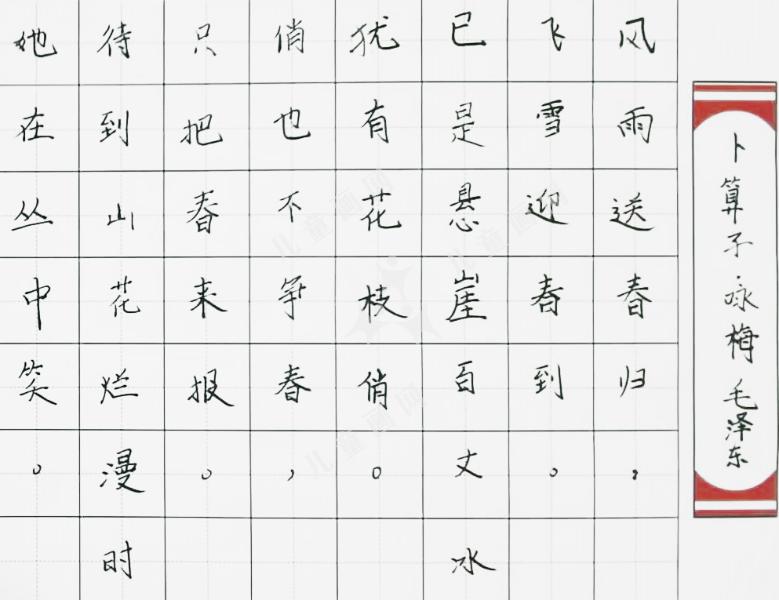 卜算子·咏梅 毛泽东
风雨送春归，
飞雪迎春到。
已是悬崖百丈冰
犹有花枝俏。
俏也不争春，
只把春来报。
待到山花烂漫时
她在丛中笑。
儿童画网
儿童画网
儿童画网